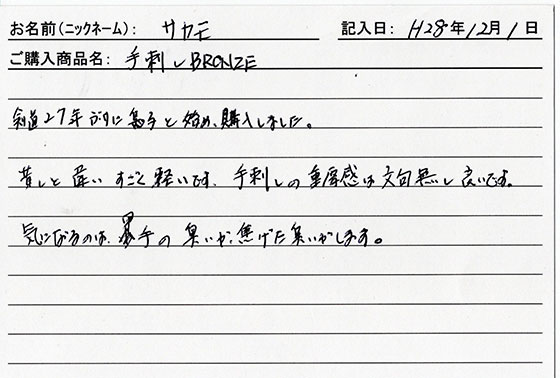 お名前(ニックネーム): サカモ 記入日: H28年12月1日
ご購入商品名: 手刺しBRONZE
剣道27年ぶりに息子と始め、購入しました。
昔しと違いすごく軽いです、手刺しの重厚感は文句無し良いです。
気になるのは、手の臭いが、焦げた臭いがします。